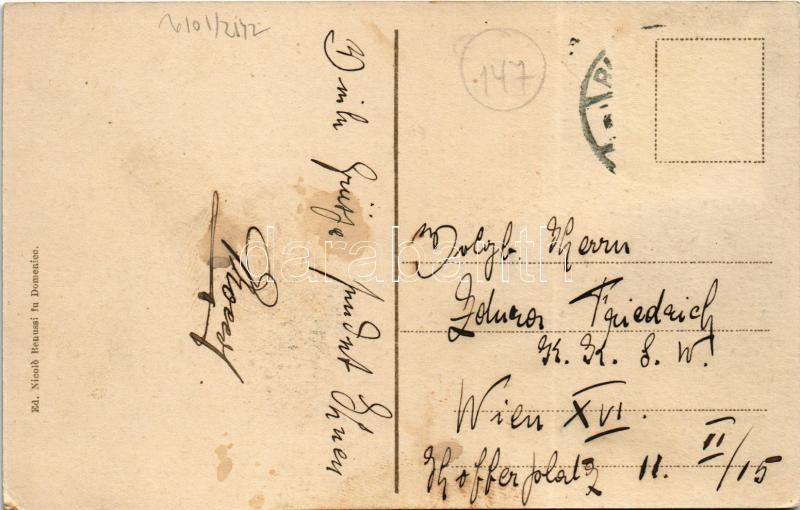 6101/2142
147
Grüße sendet Ihnen
Herrn
Friedrich
K. K. S. W.
Wien XVI.
Hofferplatz 11. II/15
Ed. Nicolò Benussi fu Domenico.
darabanth